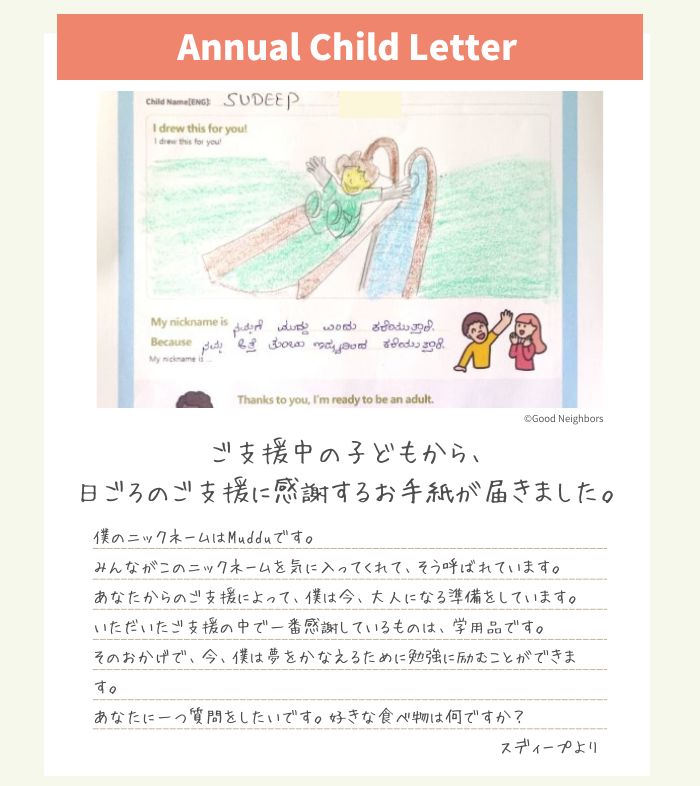 Annual Child Letter
Child Name[ENG]: SUDEEP
I drew this for you!
I drew this for you!
My nickname is ನಮಗೆ ಮುದ್ದು ಎಂದು ಕರೆಯುತ್ತಾರೆ.
Because ನಮ್ಮ ಹತ್ರ ತುಂಬಾ ಇಷ್ಟದಿಂದ ಕರೆಯುತ್ತಾರೆ.
My nickname is ...
Thanks to you, I'm ready to be an adult.
©Good Neighbors
ご支援中の子どもから、
日ごろのご支援に感謝するお手紙が届きました。
僕のニックネームはMudduです。
みんながこのニックネームを気に入ってくれて、そう呼ばれています。
あなたからのご支援によって、僕は今、大人になる準備をしています。
いただいたご支援の中で一番感謝しているものは、学用品です。
そのおかげで、今、僕は夢をかなえるために勉強に励むことができま
す。
あなたに一つ質問をしたいです。好きな食べ物は何ですか？
スディープより